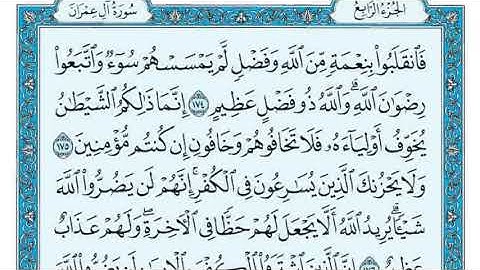 سُورَةُ آلِ عِمْرَانَ الجُزْءُ الرَّابِعُ
فَٱنقَلَبُوا۟ بِنِعْمَةٍ مِّنَ ٱللَّهِ وَفَضْلٍ لَّمْ يَمْسَسْهُمْ سُوٓءٌ وَٱتَّبَعُوا۟
رِضْوَٰنَ ٱللَّهِ ۗ وَٱللَّهُ ذُو فَضْلٍ عَظِيمٍ ١٧٤ إِنَّمَا ذَٰلِكُمُ ٱلشَّيْطَٰنُ
يُخَوِّفُ أَوْلِيَآءَهُۥ فَلَا تَخَافُوهُمْ وَخَافُونِ إِن كُنتُم مُّؤْمِنِينَ ١٧٥
وَلَا يَحْزُنكَ ٱلَّذِينَ يُسَٰرِعُونَ فِى ٱلْكُفْرِ ۚ إِنَّهُمْ لَن يَضُرُّوا۟ ٱللَّهَ
شَيْـًٔا ۗ يُرِيدُ ٱللَّهُ أَلَّا يَجْعَلَ لَهُمْ حَظًّا فِى ٱلْـَٔاخِرَةِ ۖ وَلَهُمْ عَذَابٌ